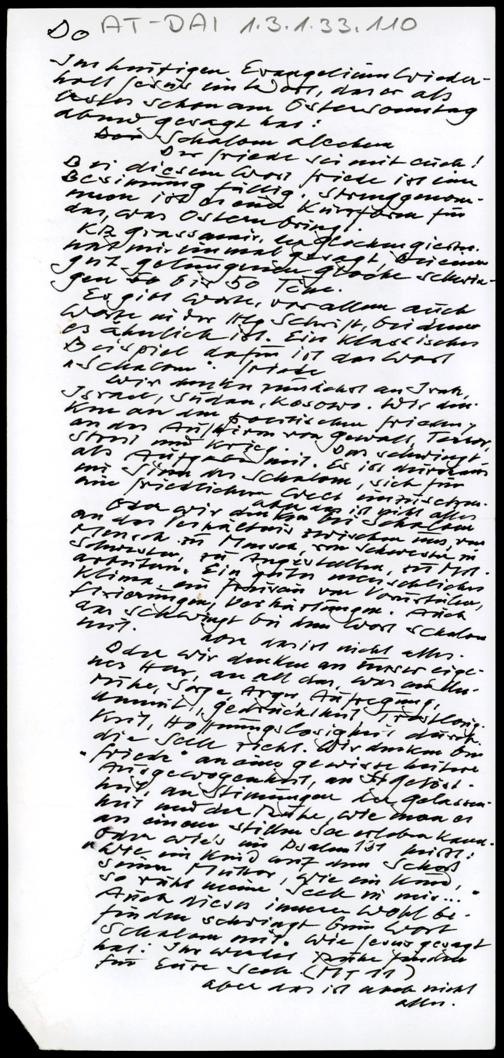 Do AT-DAI 1.3.1.33.110
Im heutigen Evangelium wieder-
holt Jesus ein Wort, das er als
erstes schon am Ostersonntag
abend gesagt hat:
Schalom alechem
Der Friede sei mit euch!
Bei diesem Wort Friede ist eine
Besinnung fällig. Strenggenom-
men ist es eine Kurzform für
das, was Ostern bringt.
Glockengiesser
hat mir einmal gesagt, bei einer
gut gelungenen Glocke schwin-
gen 40 bis 50 Töne.
Es gibt Worte, vor allem auch
Worte in der Hlg Schrift, bei denen
es ähnlich ist. Ein klassisches
Beispiel dafür ist das Wort
"Schalom". Friede
Wir denken zunächst an Irak,
Israel, Sudan, Kosowo. Wir den-
ken an den politischen Frieden,
an das Aufhören von Gewalt, Terror,
Streit und Krieg. Das schwingt
als Aufgabe mit. Es ist durchaus
im Sinn des Schalom, sich für
eine friedlichere Welt einzusetzen.
aber das ist nicht alles
Oder wir denken bei Schalom
an das Verhältnis zwischen uns, von
Mensch zu Mensch, von Schwester zu
Schwester, zu Angestellten, zu Mit-
arbeitern. Ein gutes menschliches
Klima, ein Freisein von Vorurteilen,
Fixierungen, Verhärtungen. Auch
das schwingt bei dem Wort Schalom
mit. Aber das ist nicht alles.
Oder wir denken an unser eige-
nes Herz, an all das, was an Un-
ruhe, Sorge, Ärger, Aufregung,
Unmut, Gedrücktheit, Trostlosig-
keit, Hoffnungslosigkeit durch
die Seele zieht. Wir denken bei
"Friede" an eine gewisse heitere
Ausgewogenheit, an Gelöst-
heit, an Stimmungen der Gelassen-
heit und der Ruhe, wie man es
an einem stillen See erleben kann.
Oder wie's im Psalm 131 heißt:
"Wie ein Kind auf dem Schoß
seiner Mutter, wie ein Kind,
so ruht meine Seele in mir..."
Auch dieses innere Wohlbe-
finden schwingt beim Wort
Schalom mit. Wie Jesus gesagt
hat: Ihr werdet Ruhe finden
für Eure Seele (MT 11)
aber das ist auch nicht
alles.